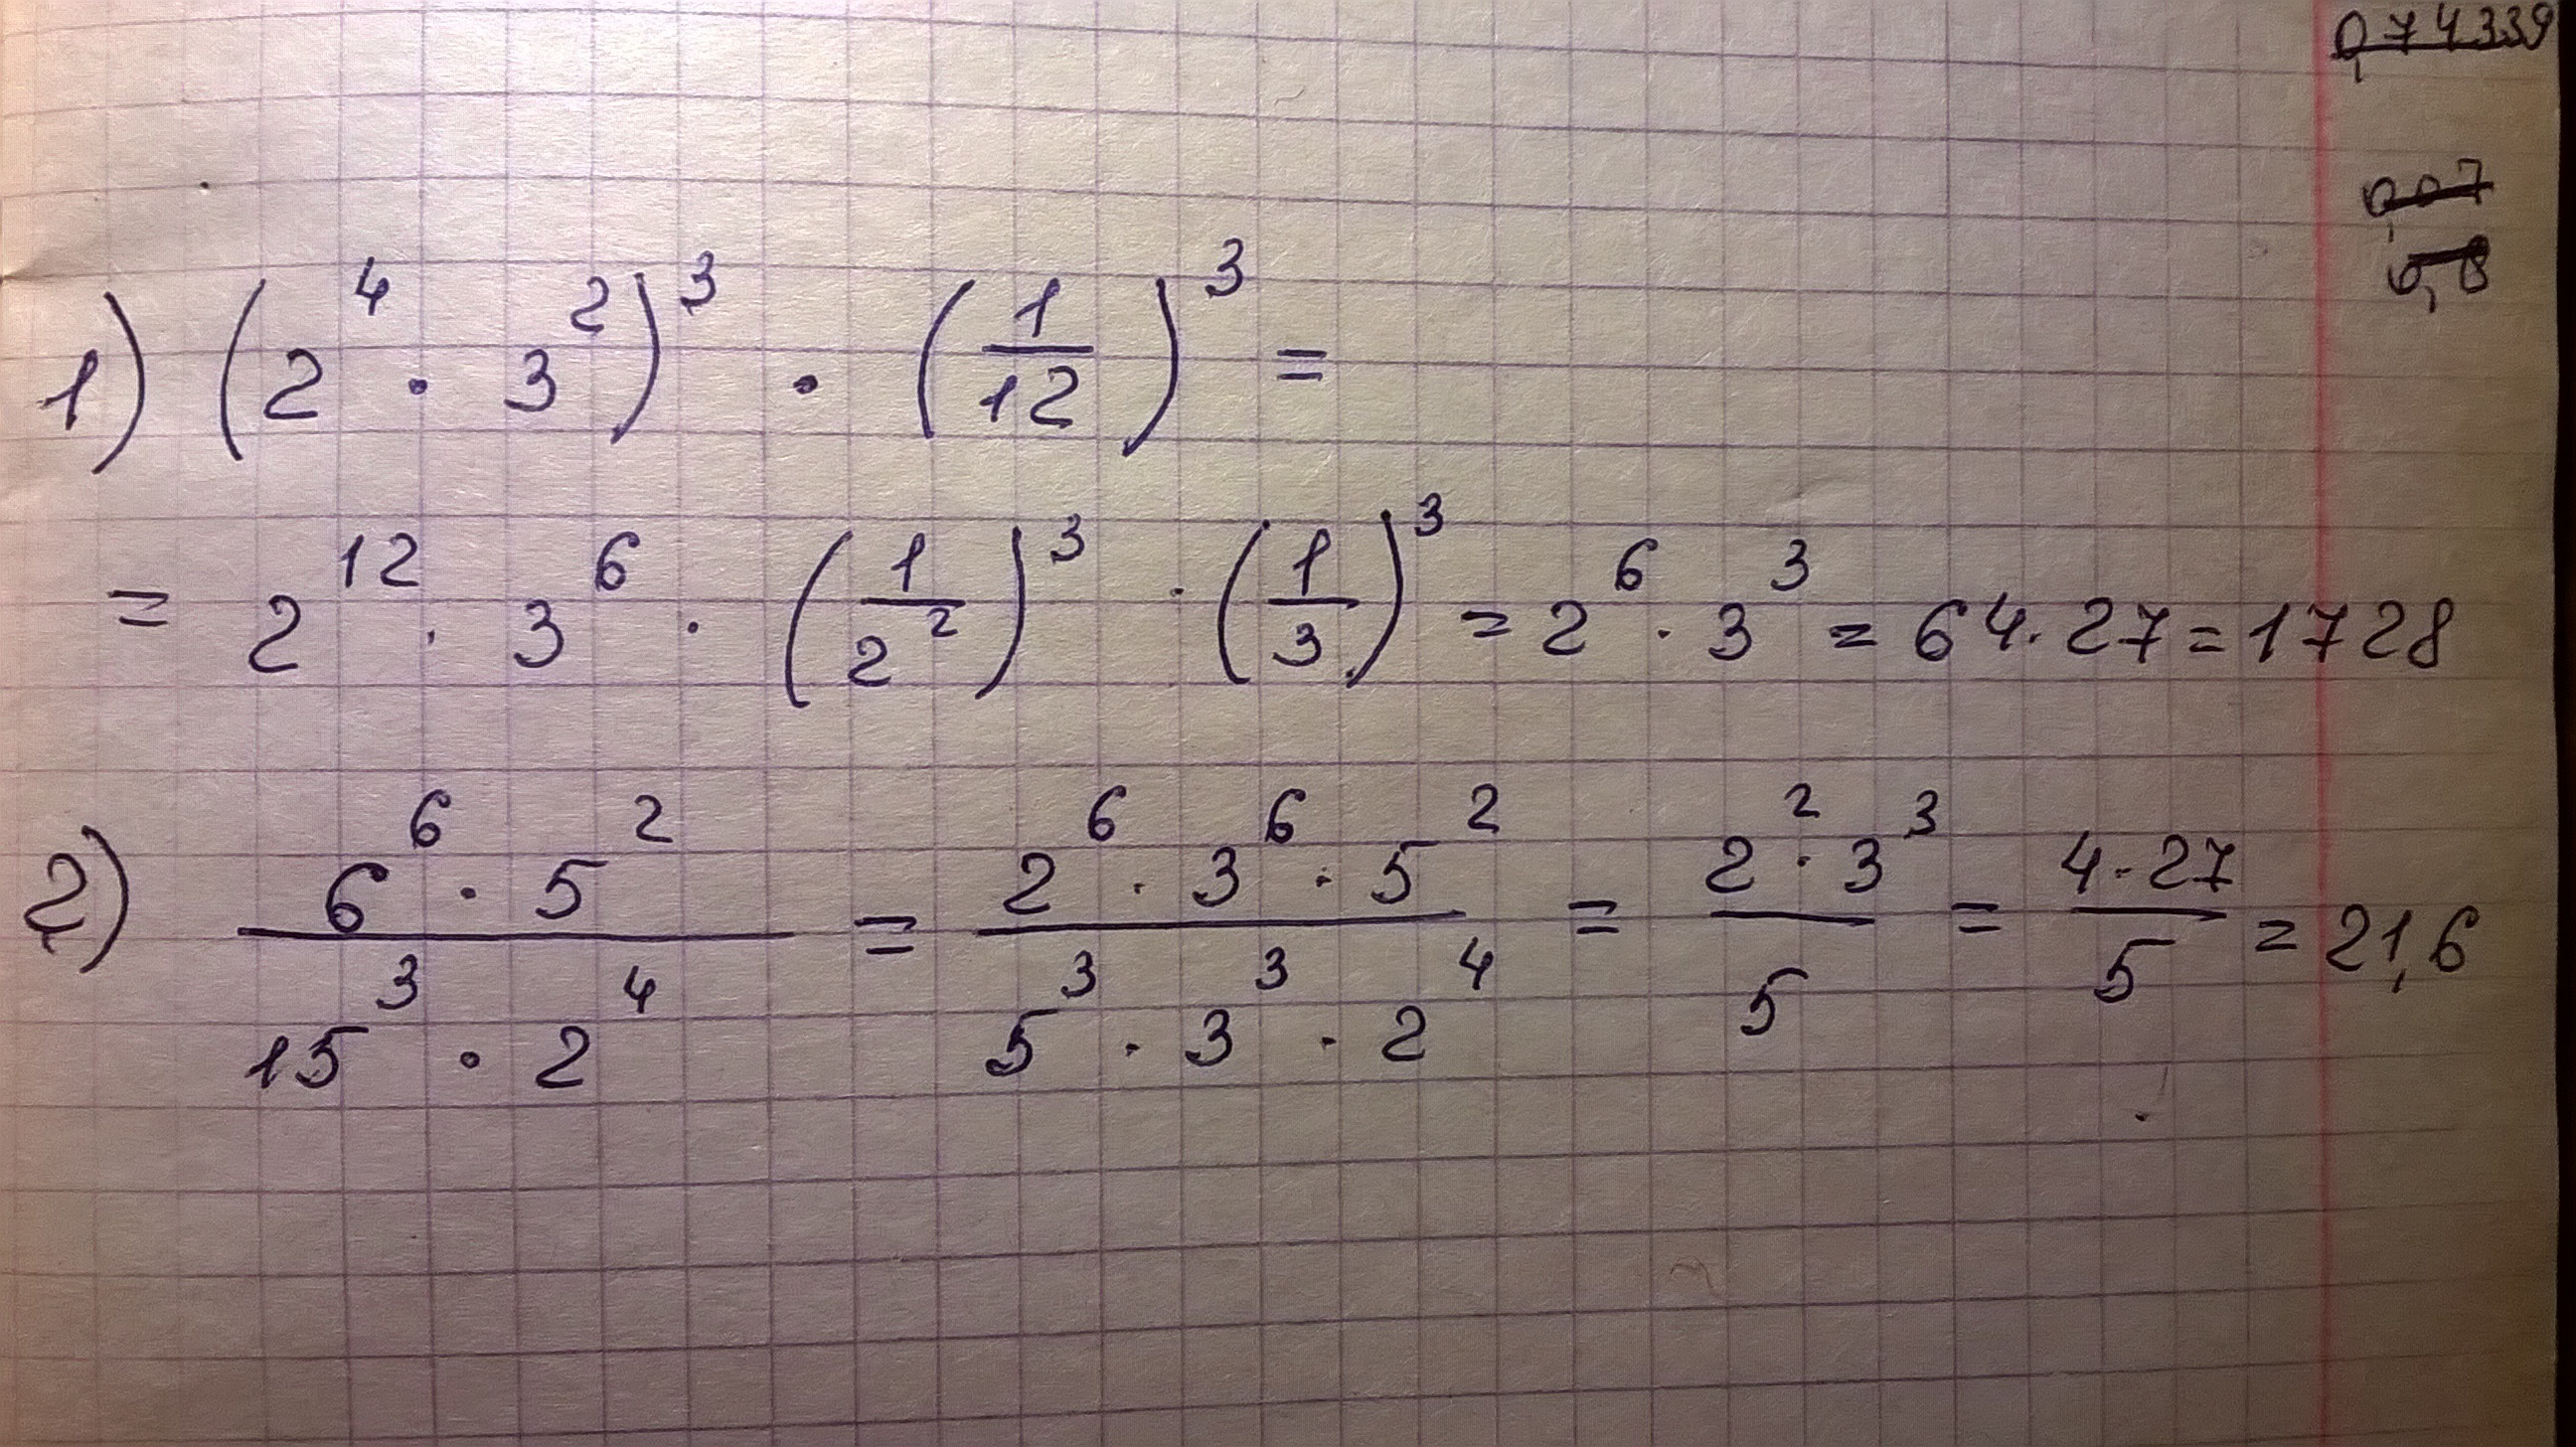 0,74339
0,07
0,8
1) (2⁴ · 3²)³ · (1/12)³ =
= 2¹² · 3⁶ · (1/2²)³ · (1/3)³ = 2⁶ · 3³ = 64 · 27 = 1728
2) (6⁶ · 5²)/(15³ · 2⁴) = (2⁶ · 3⁶ · 5²)/(5³ · 3³ · 2⁴) = (2² · 3³)/5 = (4 · 27)/5 = 21,6